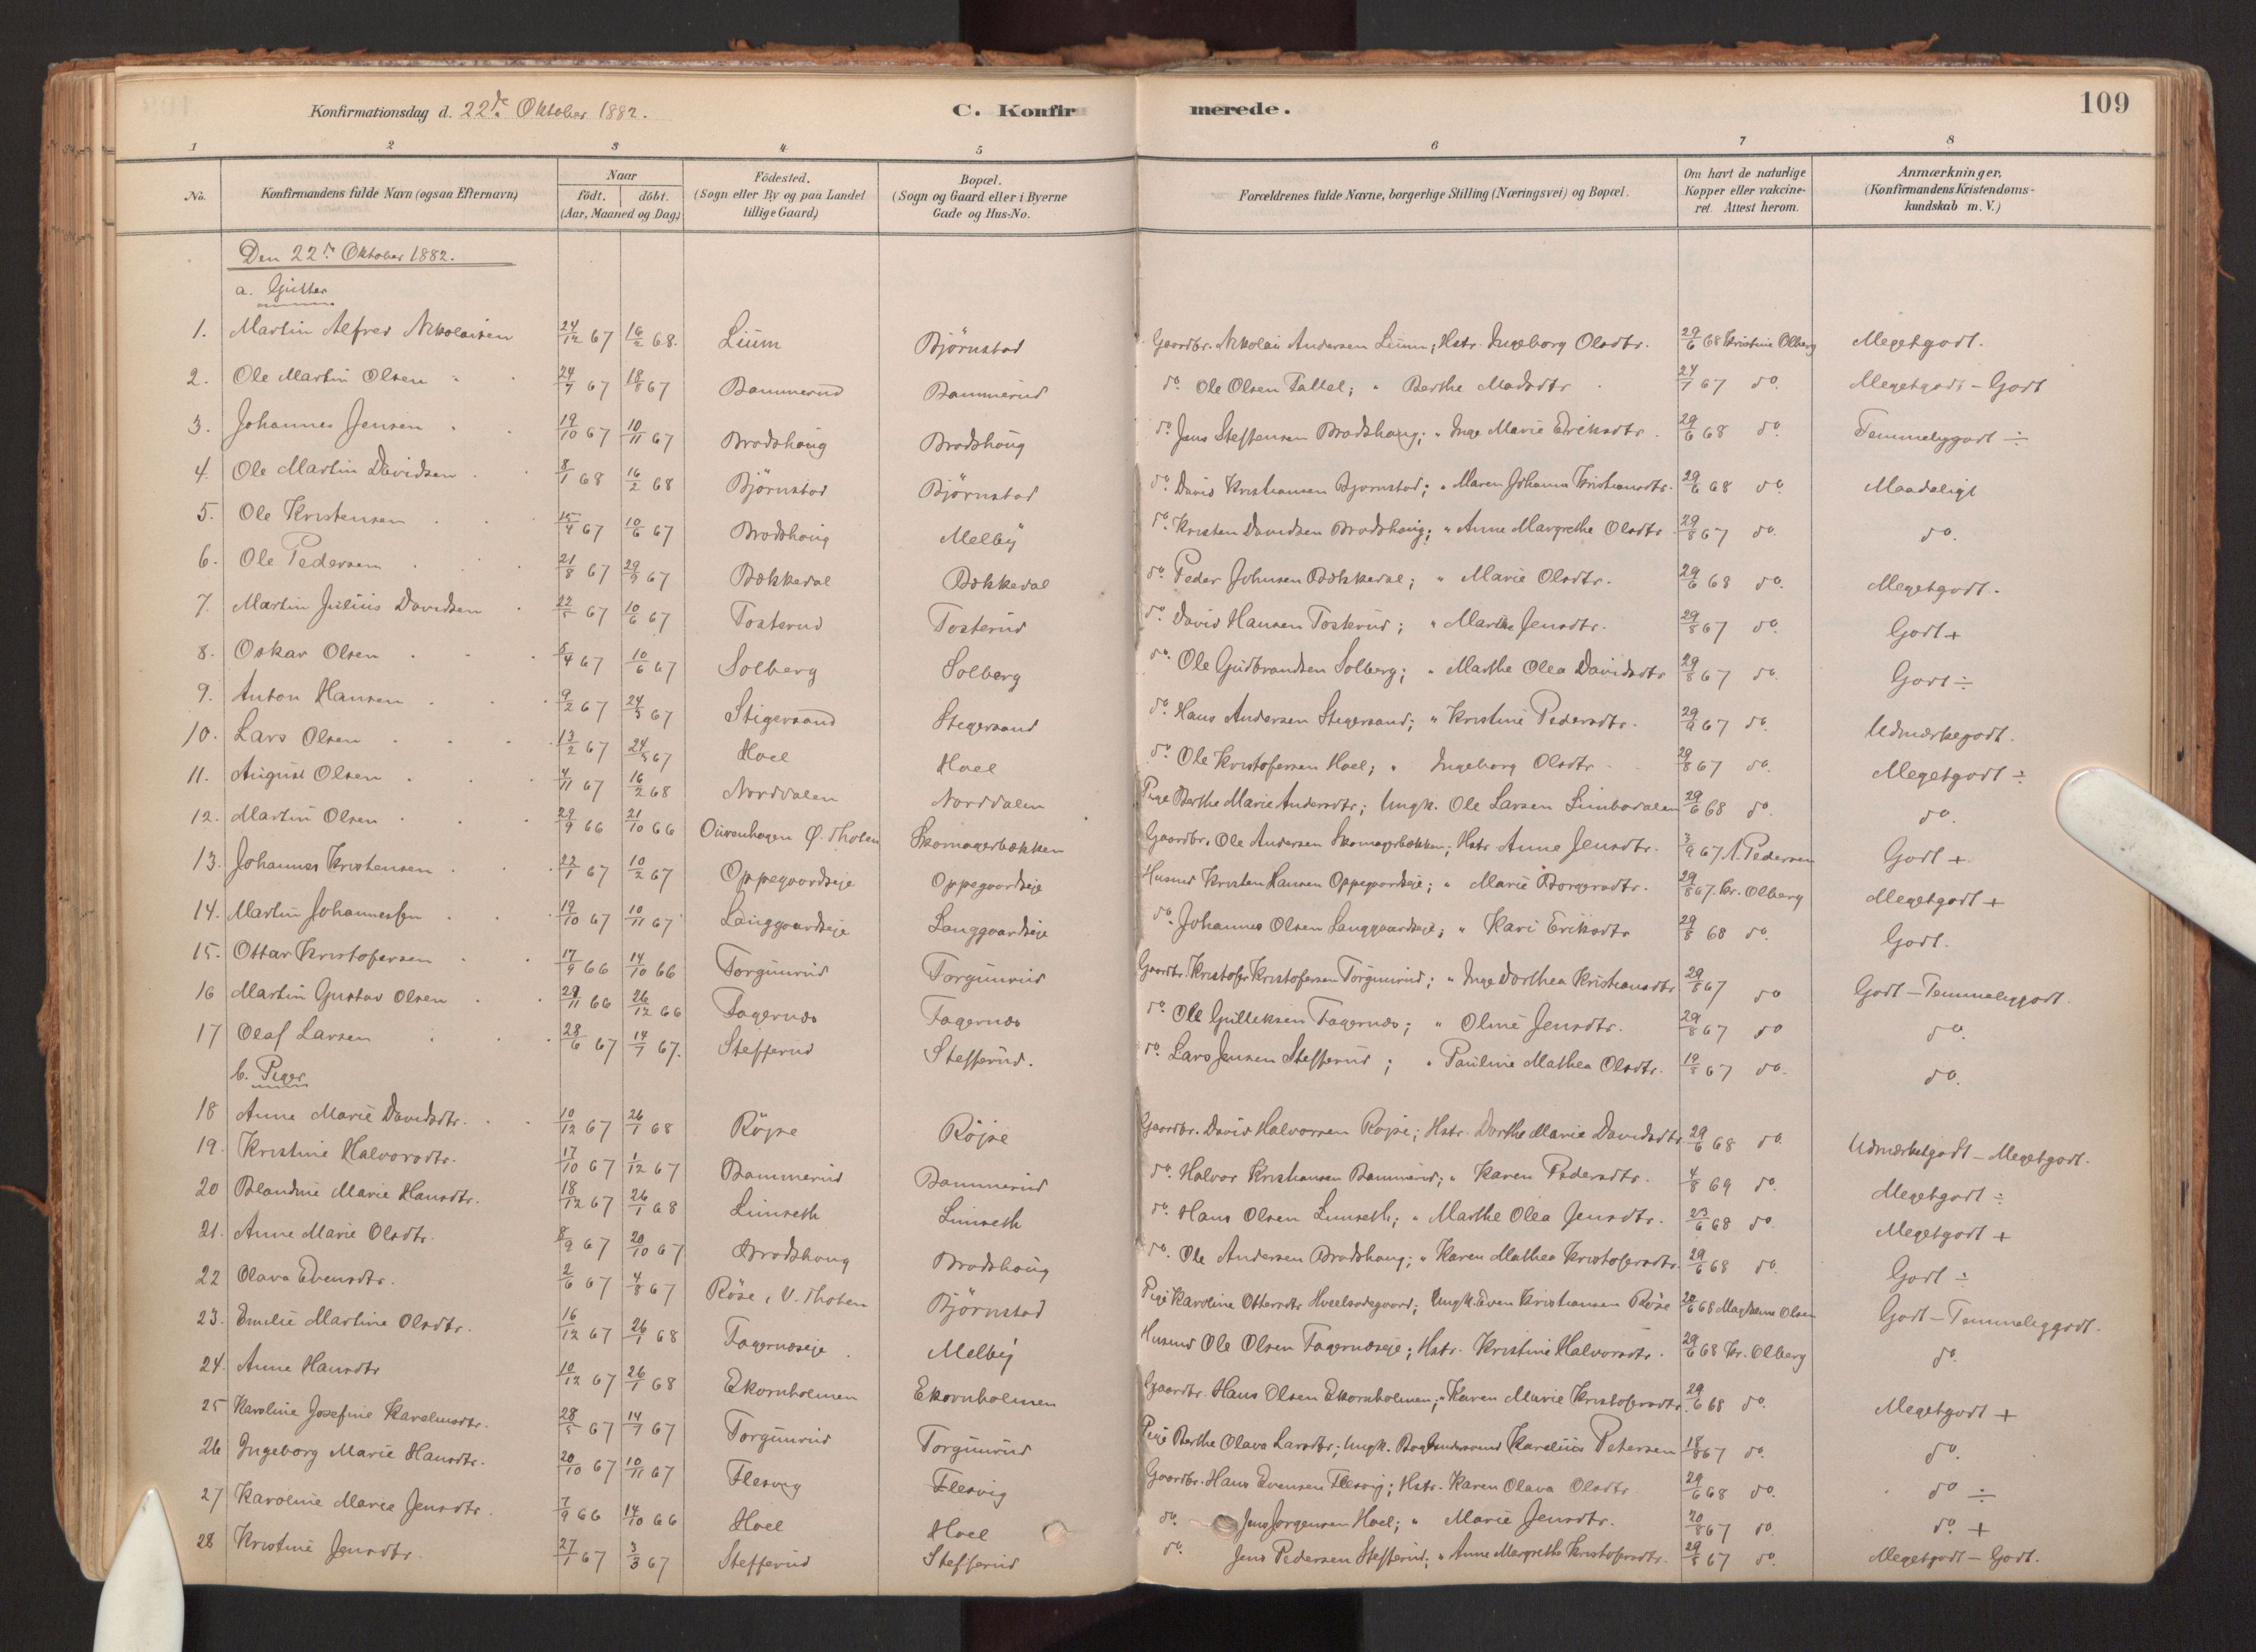 109
Konfirmationsdag d. 22de Oktober 1882. C. Konfirmerede.
1 2 3 4 5 6 7 8
No. Konfirmandens fulde Navn (ogsaa Efternavn) Naar födt. döbt. (Aar, Maaned og Dag.) Födested. (Sogn eller By og paa Landet tillige Gaard) Bopæl. (Sogn og Gaard eller i Byerne Gade og Hus-No. Forældrenes fulde Navne, borgerlige Stilling (Næringsvei) og Bopæl. Om havt de naturlige Kopper eller vakcineret. Attest herom. Anmærkninger. (Konfirmandens Kristendomskundskab m. V.)
Den 22de Oktober 1882.
a. Gutter
1. Martin Alfred Nikolaisen 24/12 67 16/2 68. Lium Björnstad Gaardbr. Nikolai Andersen Lium; Hstr. Ingeborg Olsdtr. 29/6 68 Kristine Olberg Megetgodt.
2. Ole Martin Olsen 24/7 67 18/8 67 Bammerud Bammerud do. Ole Olsen Faltel; " Berthe Madsdtr 24/7 67 do. Megetgodt - Godt
3. Johannes Jensen 19/10 67 10/11 67 Brodshoug Brodshoug do. Jens Steffensen Brodshoug; " Inge Marie Eriksdtr. 29/6 68 do. Temmeliggodt ÷
4. Ole Martin Davidsen 8/1 68 16/2 68 Björnstad Björnstad do. David Kristiansen Bjørnstad; " Maren Johanne Kristiansdtr. 29/6 68 do. Maadeligt
5. Ole Kristensen 15/4 67 10/6 67 Brodshoug Melby do. Kristen Davidsen Brodshoug; " Anne Margrethe Olsdtr 29/8 67 do. do.
6. Ole Pedersen 21/8 67 29/9 67 Bækkedal Bækkedal do. Peder Johnsen Bækkedal; " Marie Olsdtr. 29/6 68 do. Megetgodt.
7. Martin Julius Davidsen 22/5 67 10/6 67 Tosterud Tosterud do. David Hansen Tosterud; " Marthe Jensdtr. 29/8 67 do. Godt +
8. Oskar Olsen 5/4 67 10/6 67 Solberg Solberg do. Ole Gudbrandsen Solberg; " Marthe Olea Davidsdtr 29/8 67 do. Godt ÷
9. Anton Hansen 9/2 67 24/3 67 Stigersand Stegersand do. Hans Andersen Stegersand; " Kristine Pedersdtr. 29/8 67 do. Udmærketgodt.
10. Lars Olsen 13/2 67 24/3 67 Hoel Hoel do. Ole Kristofersen Hoel; " Ingeborg Olsdtr 29/8 67 do. Megetgodt ÷
11. August Olsen 4/11 67 16/2 68 Norddalen Norddalen Pige Berthe Marie Andersdtr; Ungk. Ole Larsen Limbodalen 29/6 68 do. do.
12. Martin Olsen 29/9 66 21/10 66 Ø. Thoten Skomagerbækken Gaardbr. Ole Andersen Skomagerbækken; Hstr Anne Jensdtr. 3/9 67 A. Pedersen Godt +
13. Johannes Kristensen 22/1 67 10/2 67 Oppegaardseje Oppegaardseje Husmd Kristen Hansen Oppegaardseje; " Marie Borgersdtr. 29/8 67. Kr. Olberg Megetgodt +
14. Martin Johannessen 19/10 67 10/11 67 Langgaardseje Langgaardseje do. Johannes Olsen Langgaardseje; " Kari Eriksdtr 29/8 68 do. Godt.
15. Ottar Kristofersen 17/9 66 14/10 66 Torgunrud Torgunrud Gaardbr. Kristofer Kristofersen Torgunrud; " Inge Dorthea Kristiansdtr 29/8 67 do Godt - Temmeliggodt.
16 Martin Gustav Olsen 29/11 66 26/12 66 Fagernæs Fagernæs do. Ole Gulleksen Fagernæs; " Oline Jensdtr. 29/8 67 do do.
17 Olaf Larsen 28/6 67 14/7 67. Stefferud Stefferud. do. Lars Jensen Stefferud; " Pauline Mathea Olsdtr. 19/8 67 do. do.
b. Piger
18 Anne Marie Davidsdtr. 10/12 67 26/1 68 Röjse Röjse Gaardbr. David Halvorsen Röjse; Hstr. Dorthe Marie Davidsdtr. 29/6 68 do. Udmærketgodt - Megetgodt.
19. Kristine Halvorsdtr. 17/10 67 1/12 67 Bammerud Bammerud do. Halvor Kristiansen Bammerud; " Karen Pedersdtr. 4/8 69 do. Megetgodt ÷
20 Blandine Marie Hansdtr. 18/12 67 26/1 68 Limseth Limseth do. Hans Olsen Limseth; " Marthe Olea Jensdtr. 23/6 68 do. Megetgodt +
21. Anne Marie Olsdtr. 8/9 67 20/10 67 Brodshoug Brodshoug do. Ole Andersen Brodshaug; " Karen Mathea Kristofersdtr. 29/6 68 do. Godt ÷
22 Olava Evensdtr. 2/6 67 4/8 67 Röse, V. Thoten Björnstad Pige Karoline Ottersdtr; Ungk. Even Kristiansen Röse 20/6 68 Magdalene Olsen Godt - Temmeliggodt.
23. Emilie Martine Olsdtr. 16/12 67 26/1 68 Fagernæseje Melby Husmd Ole Olsen Fagernæseje; Hstr. Kristine Halvorsdtr. 29/6 68 Kr. Olberg do.
24. Anne Hansdtr 10/12 67 26/1 68 Ekornholmen Ekornholmen Gaardbr. Hans Olsen Ekornholmen; " Karen Marie Kristofersdtr 29/6 68 do. Megetgodt +
25 Karoline Josefine Karelinsdtr. 28/5 67 14/7 67 Torgunrud Torgunrud Pige Berthe Olava Larsdtr; Ungk. Karelius Petersen 18/8 67 do. do.
26 Ingeborg Marie Hansdtr. 20/10 67 10/11 67 Flesvig Flesvig Gaardbr. Hans Evensen Flesvig; Hstr. Karen Olava Olsdtr 29/6 68 do. do ÷
27 Karoline Marie Jensdtr. 7/9 66 14/10 66 Hoel Hoel do. Jens Jorgensen Hoel; " Marie Jensdtr. 20/8 67 do. do. +
28 Kristine Jensdtr. 27/1 67 3/3 67 Stefferud Stefferud do. Jens Pedersen Stefferud; " Anne Margrethe Kristofersdtr. 29/8 67 do. Megetgodt - Godt.